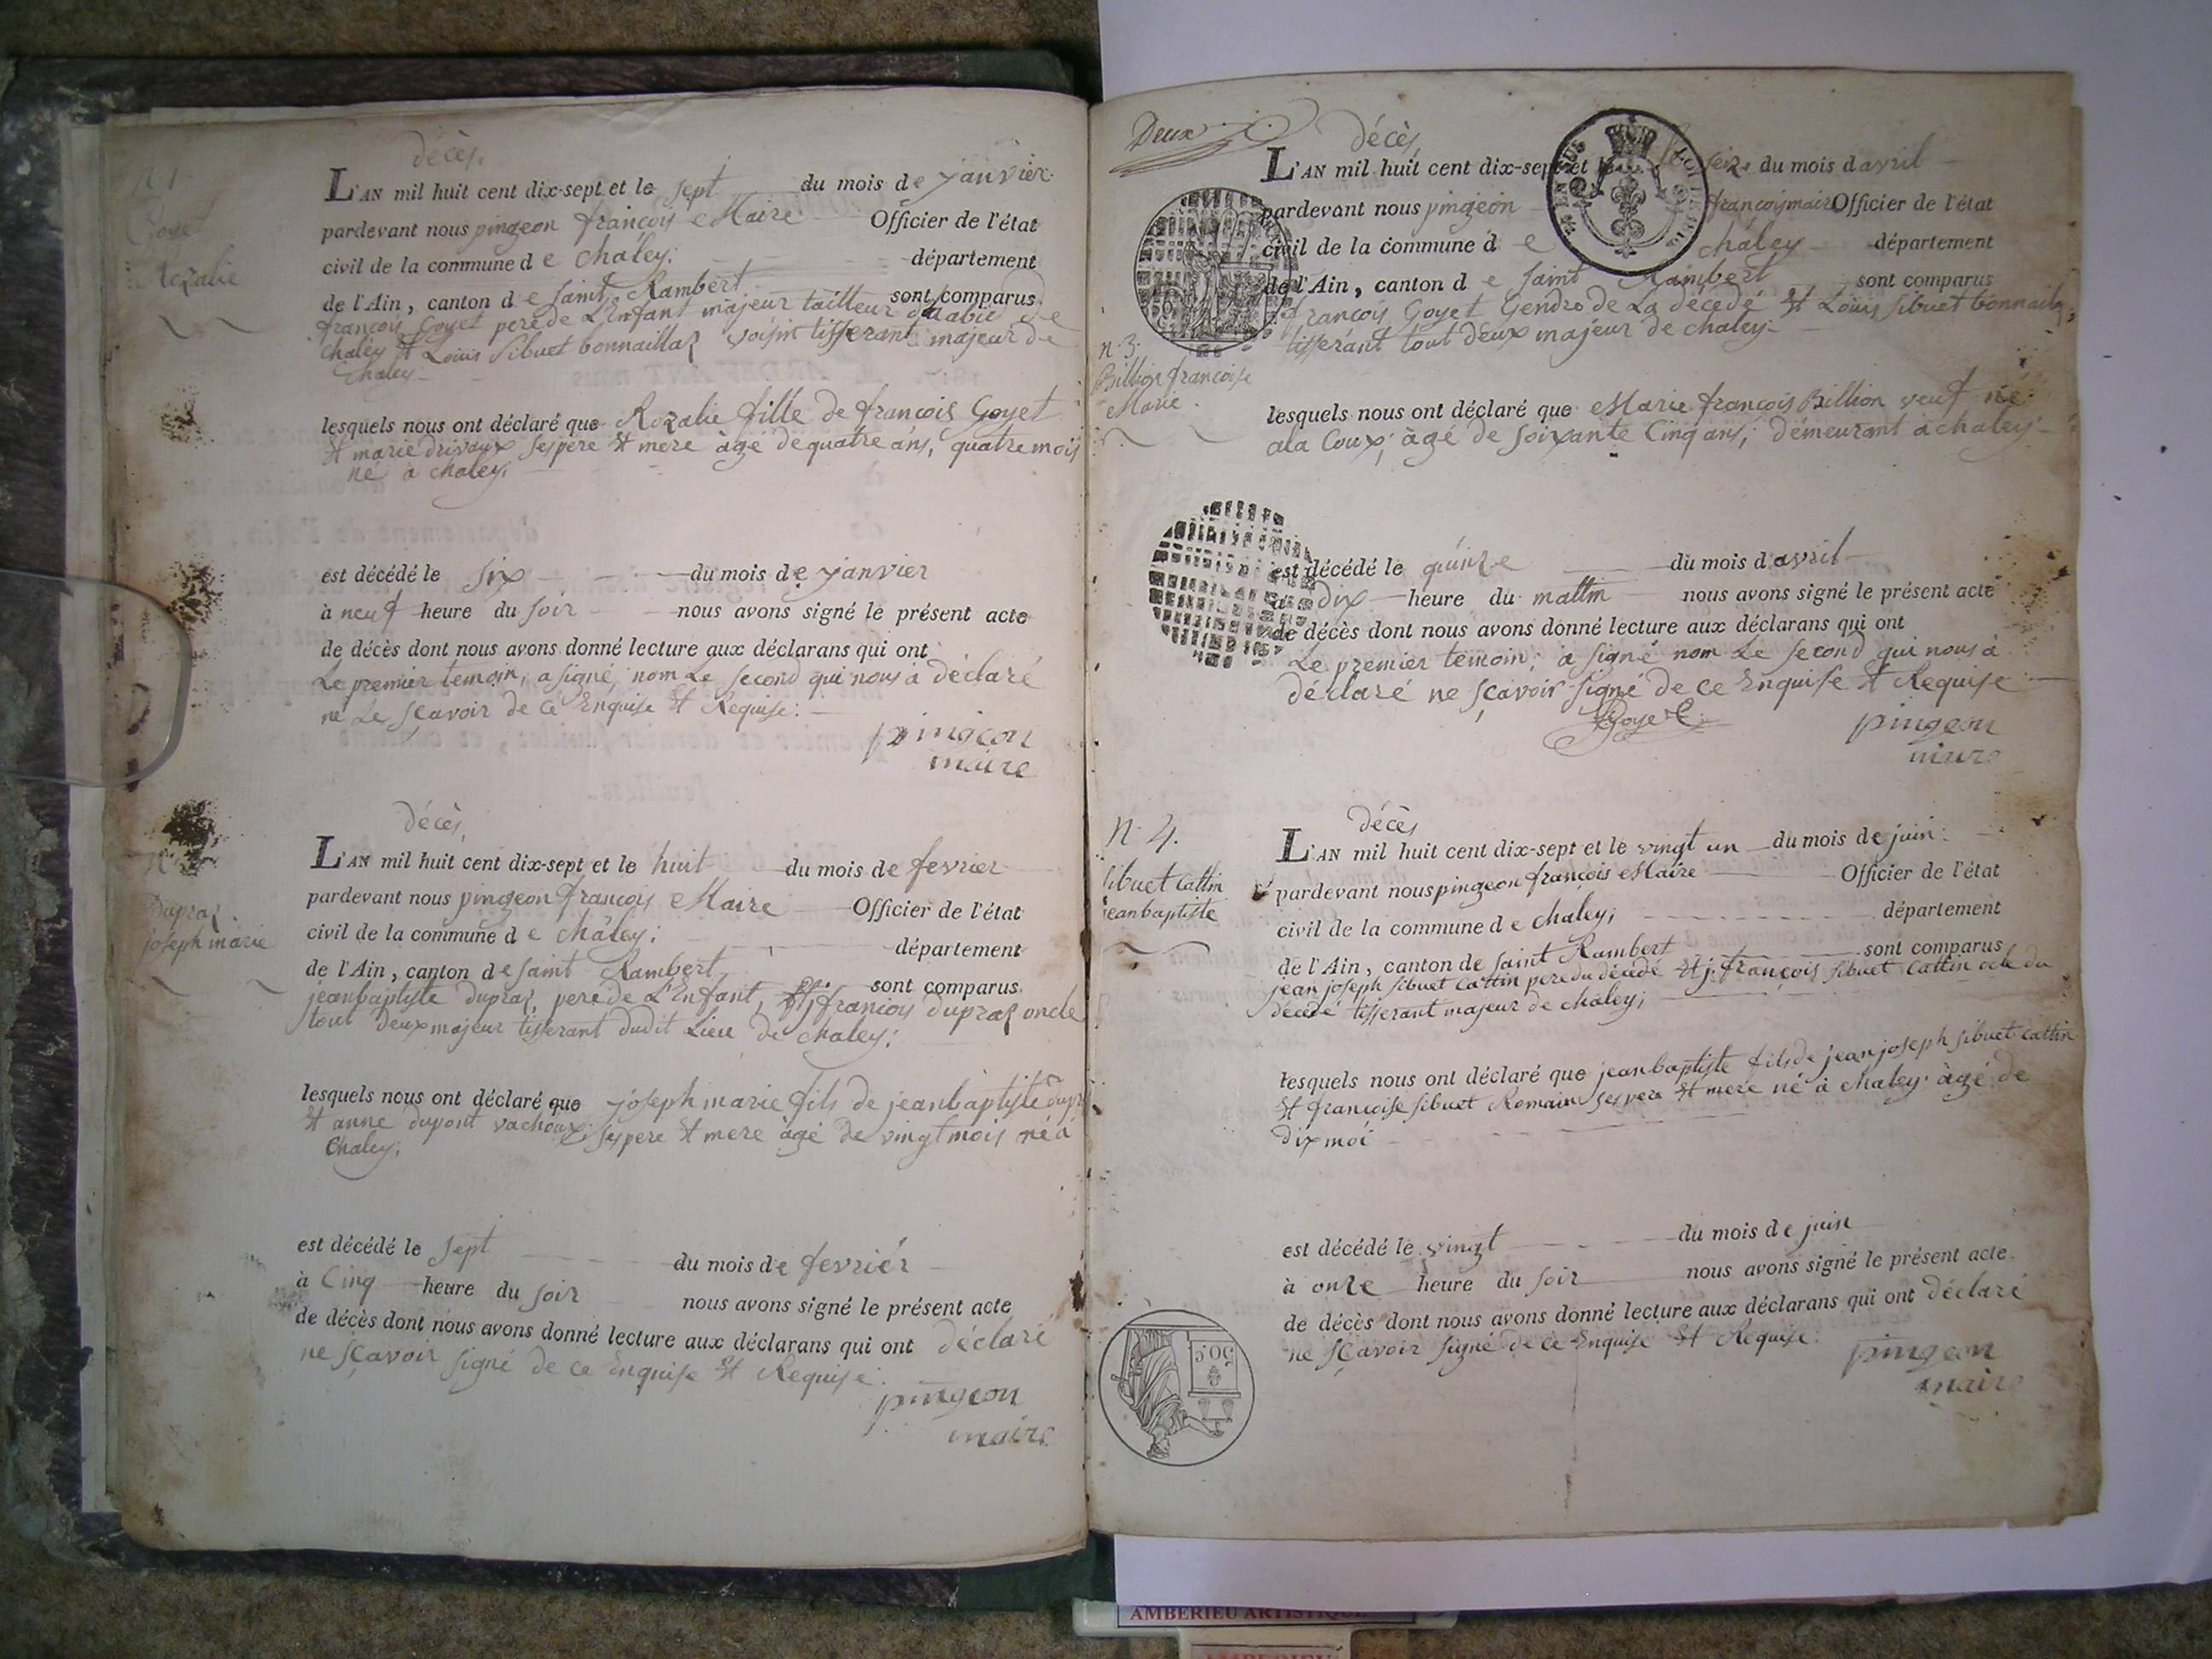 décès.
N 1
Goyet
Rozalie
L'AN mil huit cent dix-sept et le sept du mois de janvier
pardevant nous pingeon françois Maire Officier de l'état
civil de la commune d e chaley; département
de l'Ain, canton d e saint Rambert sont comparus
françois Goyet pere de L'Enfant majeur tailleur d'habie de
chaley Et Louis sibuet bonnaillaz voisin tisserant majeur de
chaley
lesquels nous ont déclaré que Rozalie fille de françois Goyet
Et marie drivaux ses pere Et mere àgé de quatre ans, quatre mois
né à chaley;
est décédé le six du mois de janvier
à neuf heure du soir nous avons signé le présent acte
de décès dont nous avons donné lecture aux déclarans qui ont
Le premier temoin; a signé, nom Le second qui nous à déclaré
ne Le sçavoir de ce Enquise Et Requise:
pingeon
maire
décès,
Dupraz
joseph marie
L'AN mil huit cent dix-sept et le huit du mois de fevrier
pardevant nous pingeon françois Maire Officier de l'état
civil de la commune d e châley; département
de l'Ain, canton de saint Rambert sont comparus
jeanbaptiste dupraz, pere de L'Enfant, Et j françois dupraz oncle
tout deux majeur tisserant dudit Lieu de chaley;
lesquels nous ont déclaré que joseph marie fils de jeanbaptiste dupr
Et anne dupont vachoux; ses pere Et mere àgé de vingt mois né à
Chaley;
est décédé le sept du mois de fevriér
à Cinq heure du soir nous avons signé le présent acte
de décès dont nous avons donné lecture aux déclarans qui ont déclaré
ne sçavoir signé de ce Enquise Et Requise.
pingeon
maire
Deux
décès,
L'AN mil huit cent dix-sept et le seize du mois d avril
pardevant nous pingeon françois maire Officier de l'état
civil de la commune d e chaley département
de l'Ain, canton d e saint Rambert sont comparus
françois Goyet Gendre de La décédé Et Louis sibuet bonnaillaz
tisserant tout deux majeur de chaley
n. 3.
Billion francoise
Marie.
lesquels nous ont déclaré que Marie françois Billion veuf né
ala Coux; àgé de soixante Cinq ans; démeurant à chaley
est décédé le quinze du mois d avril
à dix heure du mattin nous avons signé le présent acte
de décès dont nous avons donné lecture aux déclarans qui ont
Le premier temoin; à signé nom Le second qui nous à
déclaré ne sçavoir signé de ce Enquise Et Requise
Goyet
pingeon
maire
décès
N. 4.
sibuet Cattin
jeanbaptiste
L'AN mil huit cent dix-sept et le vingt un du mois de juin
pardevant nous pingeon françois Maire Officier de l'état
civil de la commune d e chaley; département
de l'Ain, canton de saint Rambert sont comparus
jean joseph sibuet cattin pere du décédé Et j. françois sibuet Cattin ocle du
décédé tisserant majeur de chaley;
lesquels nous ont déclaré que jeanbaptiste fils de jean joseph sibuet cattin
Et françoise sibuet Romain ses pere Et mere né à chaley àgé de
dix moi
est décédé le vingt du mois de juin
à onze heure du soir nous avons signé le présent acte
de décès dont nous avons donné lecture aux déclarans qui ont déclaré
ne sçavoir signé de ce Enquise Et Requise.
pingeon
maire
50 C
AMBERIEU ARTISTIQUE